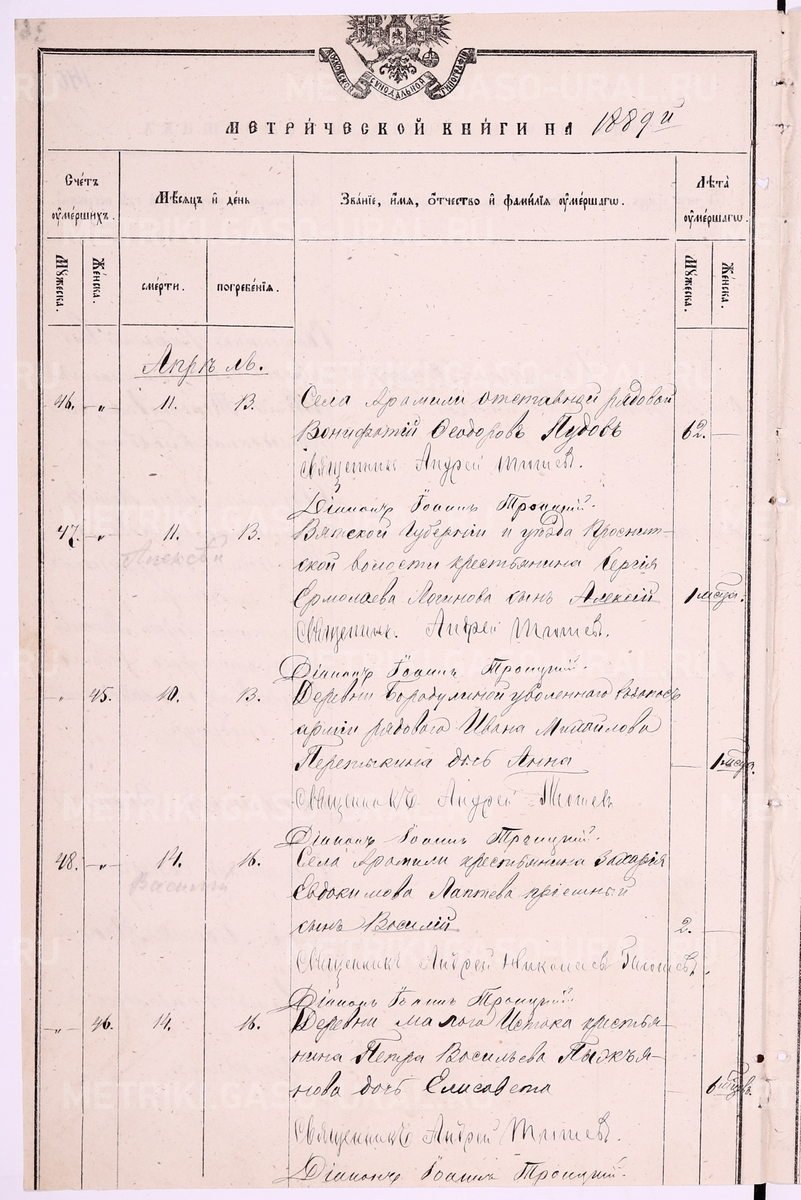 МОСКОВСКОЙ СѴНОДАЛЬНОЙ ТИПОГРАФІИ
МЕТРИ́ЧЕСКОЙ КНИ́ГИ НА 1889й
Сче́тъ ᲂу҆ме́ршихъ.
Мѣ́сяцъ и҆ де́нь
Зва́нїе, и҆́мя, ѻ҆́тчество и҆ фами́лїя ᲂу҆ме́ршагѡ.
Лѣ́та ᲂу҆ме́ршагѡ.
Мꙋ́жеска.
Же́нска.
сме́рти.
погребе́нїя.
Мꙋ́жеска.
Же́нска.
Апрѣль.
46. „ 11. 13. Села Арамили отставный рядовой
Вонифатій Ѳеодоровъ Пудовъ 62.
Священникъ Андрей
Діаконъ Іоаннъ Троицкій.
47. „ 11. 13. Вятской Губерніи и уѣзда
ской волости крестьянина Сергія
Ермолаева Логинова сынъ Алексій 1 мѣсец.
Священник. Андрей
Діаконъ Іоаннъ Троицкій.
„ 45. 10. 13. Деревни Бородулиной уволеннаго
арміи рядоваго Ивана Михайлова
Перепыкина дочь Анна 1 мѣсец.
Священникъ Андрей
Діаконъ Іоаннъ Троицкій.
48. „ 14. 16. Села Арамили крестьянина Захарія
Евдокимова Лаптева пріемный
сынъ Василій 2.
Священникъ Андрей Николаевъ
Діаконъ Іоаннъ Троицкій
„ 46. 14. 16. Деревни малого Истока крестья-
нина Петра Васильева
нова дочь Елисавета 6 мѣсцевъ.
Священникъ Андрей
Діаконъ Іоаннъ Троицкій.